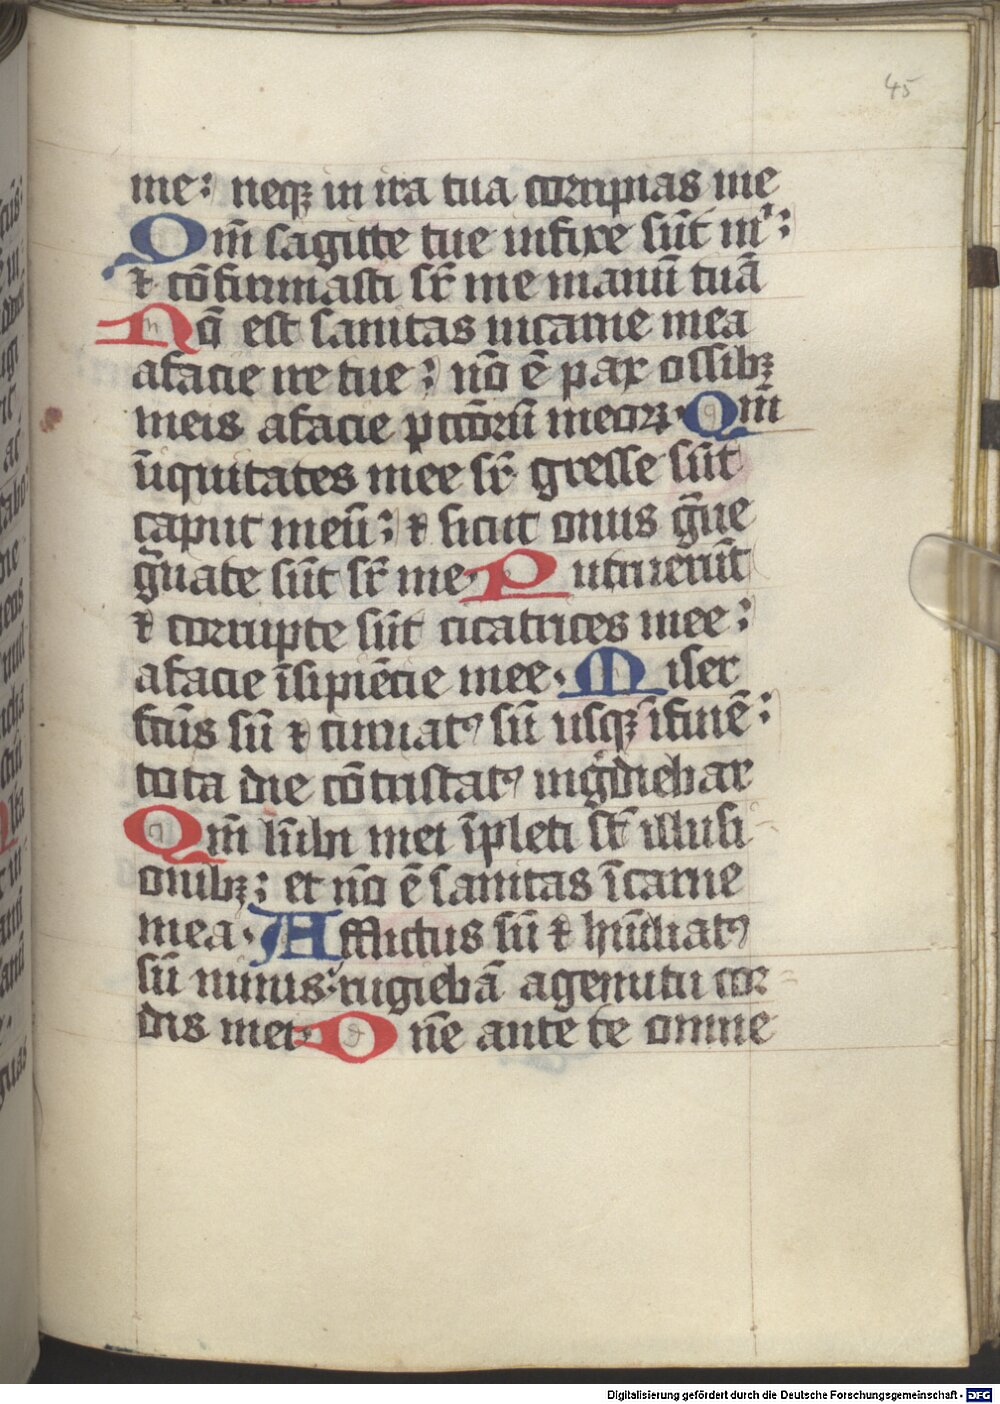 45
me: neqꝫ in ira tua corripias me
Qm̄ sagitte tue infixe sūt mͥ:
⁊ cōfirmasti sr̄ me manū tuā
Nō est sanitas incarne mea
afacie ire tue: nō ē pax ossibꝫ
meis afacie pcc̄orū meorꝝ· Qm̄
īiquitates mee sr̄ gresse sūt
caput meū: ⁊ sicut onus ḡue
ḡuate sūt sr̄ me· Putruerūt
⁊ corrupte sūt cicatrices mee:
afacie īsipiēcie mee· Miser
fc̄us sū ⁊ curuatꝰ sū usqꝫ ifinē:
tota die cōtristatꝰ ingͤdiebar
Qm̄ lūbi mei īpleti st̄ illusi
onibꝫ: et nō ē sanitas īcarne
mea· Afflictus sū ⁊ hūiliatꝰ
sū nimis: rugiebā agemitu cor-
dis mei· Dn̄e ante te omne
Digitalisierung gefördert durch die Deutsche Forschungsgemeinschaft - DFG